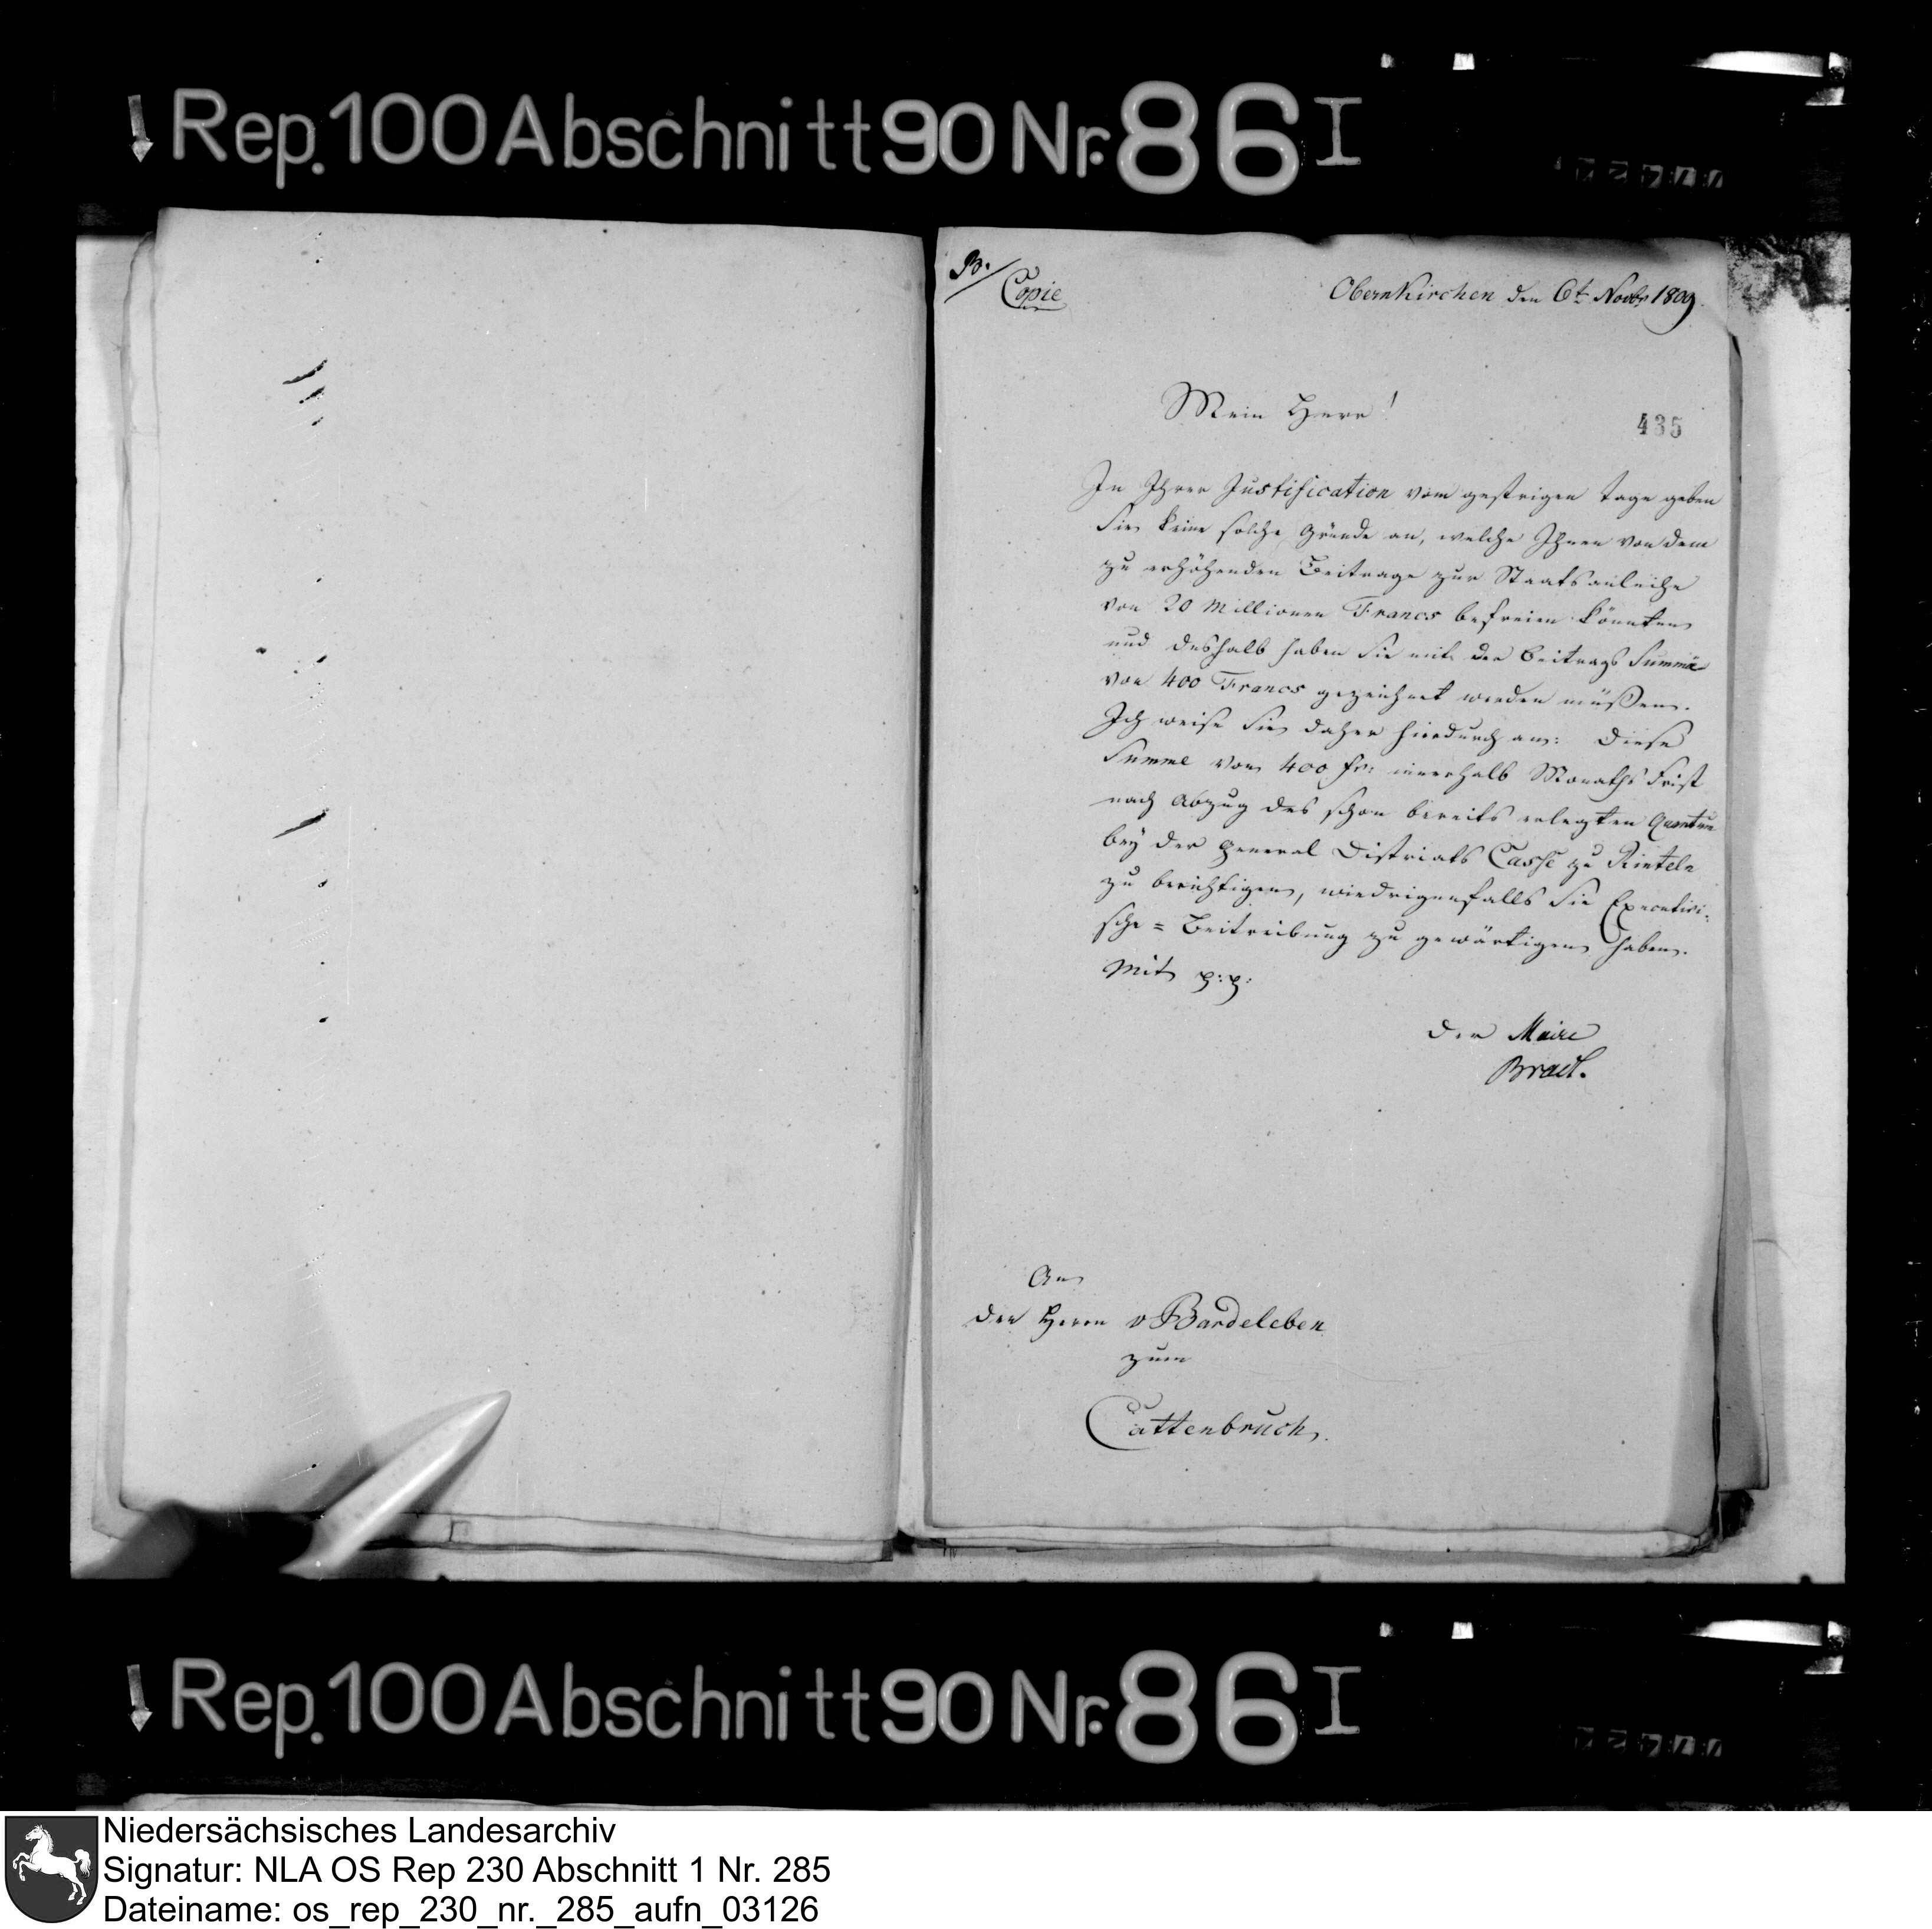 Rep. 100 Abschnitt 90 Nr. 86 I
B./
Copie
Obernkirchen den 6t Novbr 1809.
Mein Herr!
435
In Ihrer Justification vom gestrigen Tage geben
Sie keine solche Gründe an, welche Ihnen von dem
zu erhöhenden Beitrage zur Staatsanleihe
von 20 Millionen Francs befreien könnten
und deshalb haben Sie mit der Beitrags Summe
von 400 Francs gezeichnet werden müßen.
Ich weise Sie daher hierdurch an: diese
Summe von 400 fr: innerhalb Monaths Frist
nach Abzug des schon bereits erlegten Quantum
bey der General Districts Casse zu Rinteln
zu berichtigen, wiedrigenfalls Sie Executivi-
sche = Beitreibung zu gewärtigen haben.
Mit p:p:
Der Maire
An
den Herrn v Bardeleben
zum
Cattenbruch.
Rep. 100 Abschnitt 90 Nr. 86 I
Niedersächsisches Landesarchiv
Signatur: NLA OS Rep 230 Abschnitt 1 Nr. 285
Dateiname: os_rep_230_nr._285_aufn_03126